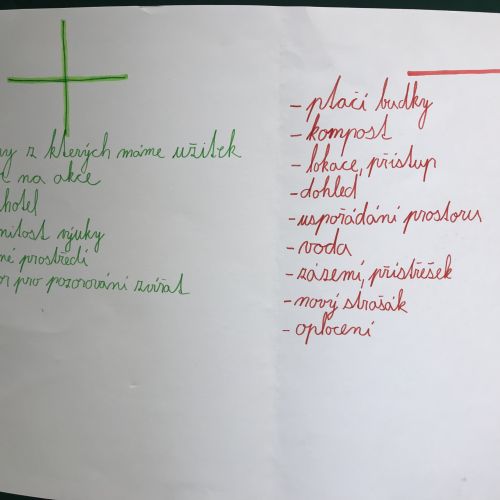 z kterých máme užitek
na akce
hotel
výuky
prostředí
pro pozorování zvířat
- ptačí budky
- kompost
- lokace, přístup
- dohled
- uspořádání prostoru
- voda
- zázemí, přístřešek
- nový strašák
- oplocení